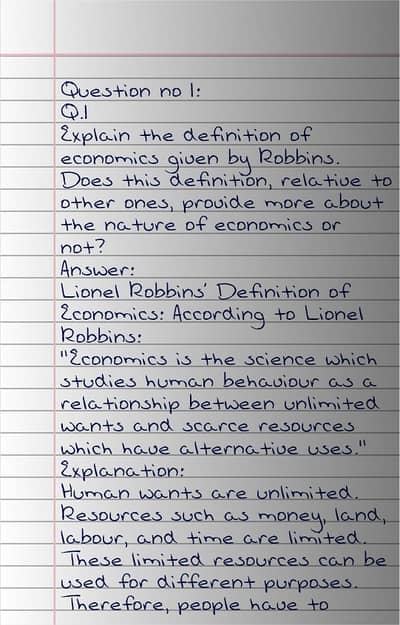 Question no 1:
Q.1
Explain the definition of
economics given by Robbins.
Does this definition, relative to
other ones, provide more about
the nature of economics or
not?
Answer:
Lionel Robbins' Definition of
Economics: According to Lionel
Robbins:
"Economics is the science which
studies human behaviour as a
relationship between unlimited
wants and scarce resources
which have alternative uses."
Explanation:
Human wants are unlimited.
Resources such as money, land,
labour, and time are limited.
These limited resources can be
used for different purposes.
Therefore, people have to